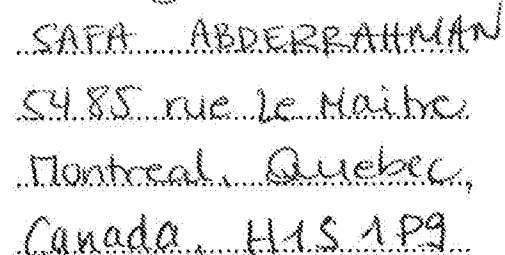 SAFA ABDERRAHMAN
5485 rue Le Maitre
Montreal, Quebec,
Canada, H1S 1P9